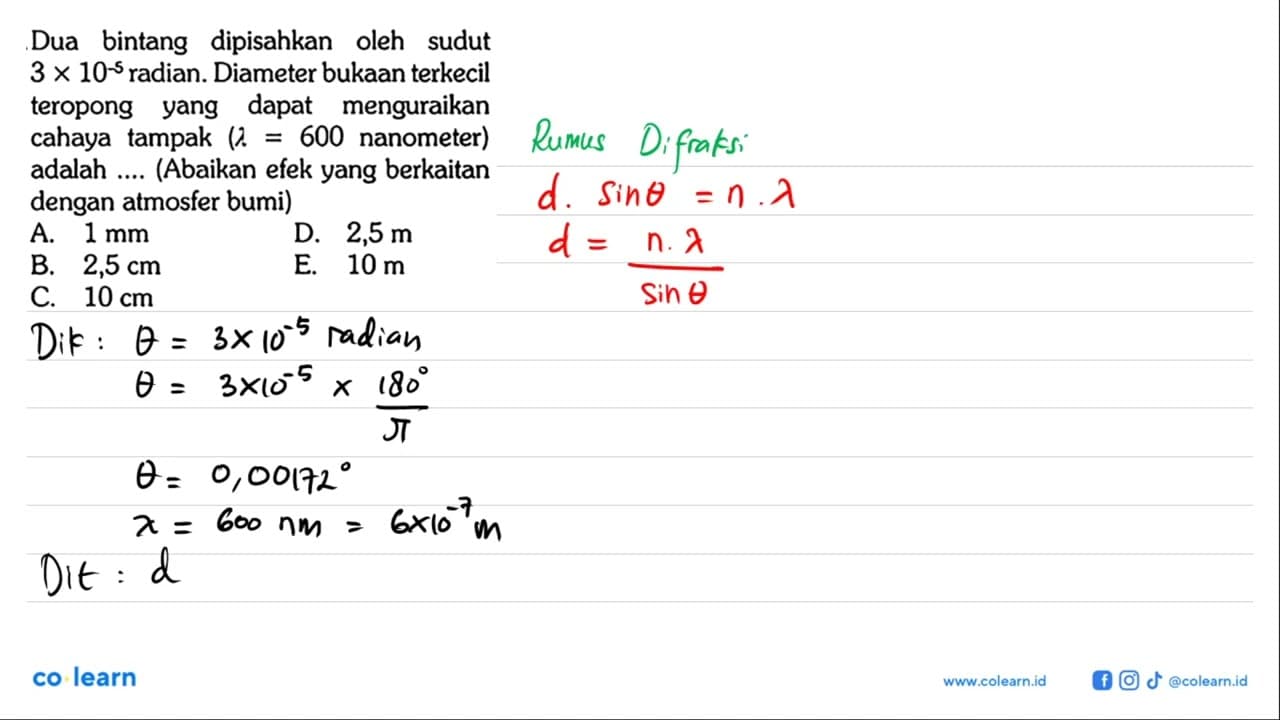 Dua bintang dipisahkan oleh sudut
3 × 10⁻⁵ radian. Diameter bukaan terkecil
teropong yang dapat menguraikan
cahaya tampak (λ = 600 nanometer)
adalah .... (Abaikan efek yang berkaitan
dengan atmosfer bumi)
A. 1 mm
B. 2,5 cm
C. 10 cm
D. 2,5 m
E. 10 m
Rumus Difraksi
d. sin θ = n . λ
d = n. λ / sin θ
Dik : θ = 3×10⁻⁵ radian
θ = 3×10⁻⁵ × 180° / π
θ = 0,00172°
λ = 600 nm = 6×10⁻⁷ m
Dit : d
co learn
www.colearn.id
@colearn.id